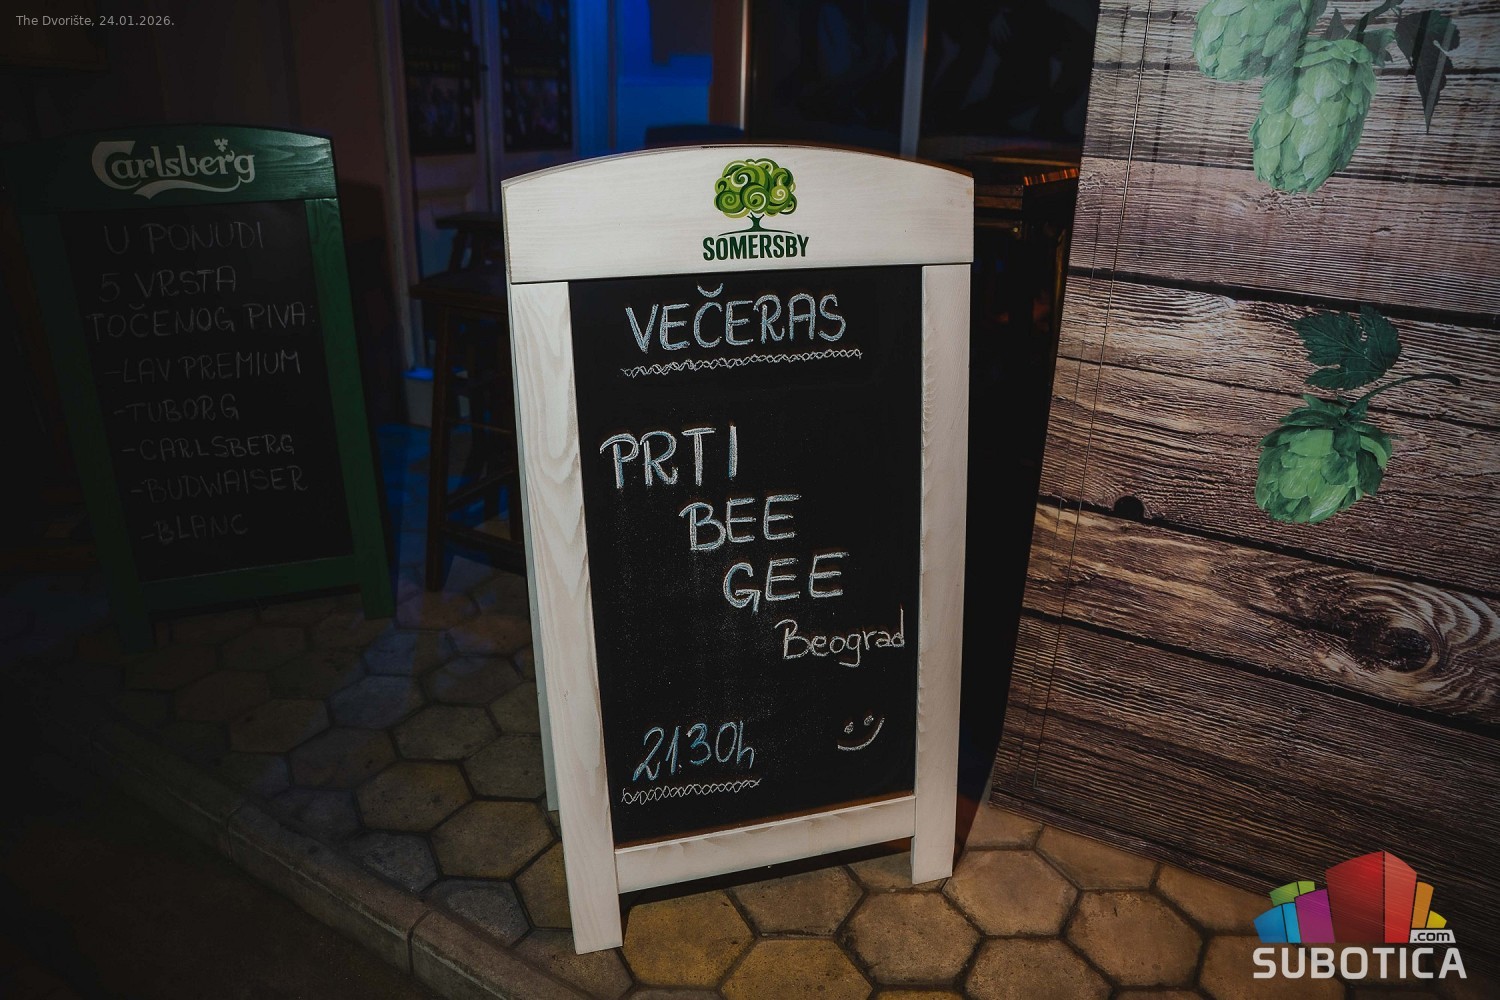 The Dvorište, 24.01.2026.
Carlsberg
U PONUDI
5 VRSTA
TOČENOG PIVA:
-LAV PREMIUM
-TUBORG
-CARLSBERG
-BUDWAISER
-BLANC
SOMERSBY
VEČERAS
PRTI
BEE
GEE
Beograd
21.30h
.com
SUBOTICA